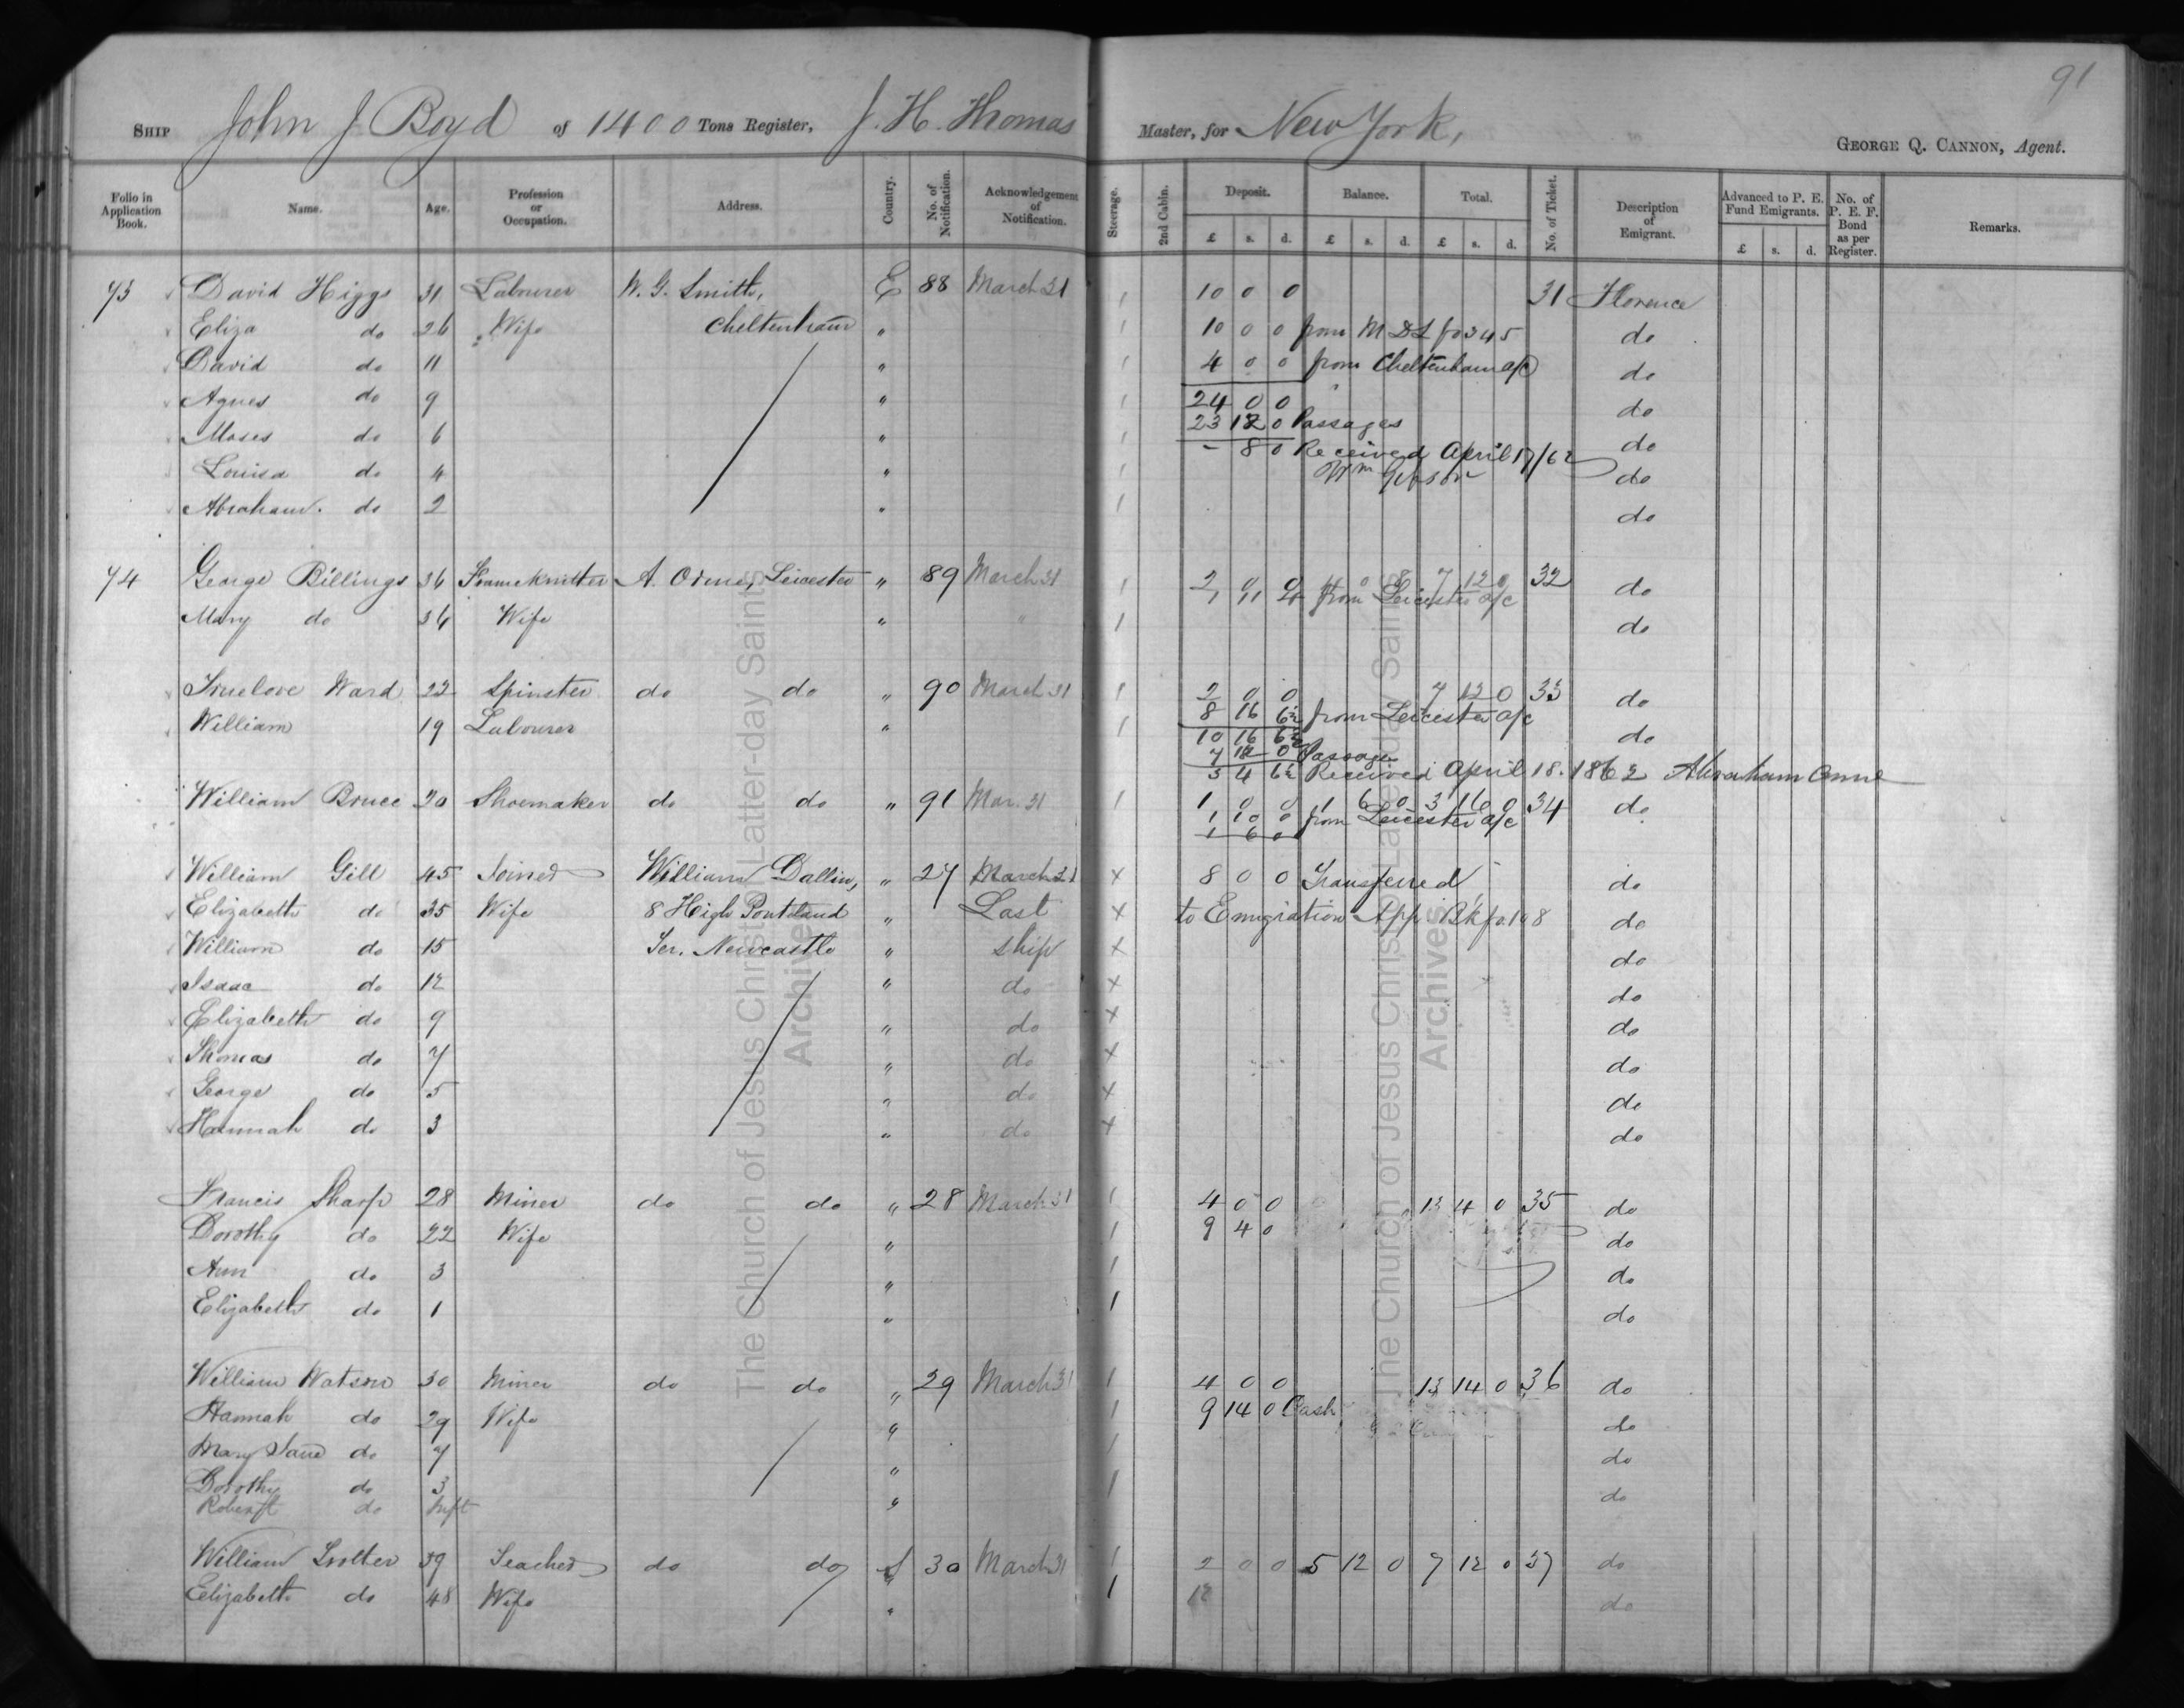 91
SHIP John J Boyd of 1400 Tons Register, J. H. Thomas Master, for New York,
GEORGE Q. CANNON, Agent.
Folio in Application Book. Name. Age. Profession or Occupation. Address. Country. No. of Notification. Acknowledgement of Notification. Steerage. 2nd Cabin. Deposit. Balance. Total. No. of Ticket. Description of Emigrant. Advanced to P. E. Fund Emigrants. No. of P. E. F. Bond as per Register. Remarks.
£ s. d. £ s. d. £ s. d. £ s. d.
73 David Higgs 31 Labourer W. G. Smith, E 88 March 31 1 10 0 0 31 Florence
Eliza do 26 Wife Cheltenham " 1 10 0 0 from M D L fo 345 do
David do 11 " 1 4 0 0 from Cheltenham a/c do
Agnes do 9 " 1 24 0 0 do
23 12 0 Passages
Moses do 6 " 1 - 8 0 Received April 17/62 do
Louisa do 4 " 1 Wm Gibson do
Abraham. do 2 " 1 do
74 George Billings 36 Frameknitter A. Orme, Leicester " 89 March 31 1 2 0 0 7 12 0 32 do
from Leicester a/c
Mary do 36 Wife " " 1 do
Truelove Ward 22 Spinster do do " 90 March 31 1 2 0 0 7 12 0 33 do
8 16 6½ from Leicester a/c
William 19 Labourer " 1 10 16 6½ do
7 12 0 Passage
3 4 6½ Received April 18. 1862 Abraham Orme
William Bruce 20 Shoemaker do do " 91 Mar. 31 1 1 0 0 1 6 0 3 16 0 34 do
1 10 0 from Leicester a/c
1 6 0
William Gill 45 Joiner William Dallin, " 27 March 31 x 8 0 0 Transferred do
Elizabeth do 35 Wife 8 High Pontland " Last x to Emigration App. Bk fo. 108 do
William do 15 Ter. Newcastle " ship x do
Isaac do 12 " do x do
Elizabeth do 9 " do x do
Thomas do 7 " do x do
George do 5 " do x do
Hannah do 3 " do x do
Francis Sharp 28 Miner do do " 28 March 31 1 4 0 0 13 4 0 35 do
Dorothy do 22 Wife " 1 9 4 0 do
Ann do 3 " 1 do
Elizabeth do 1 " 1 do
William Watson 30 Miner do do " 29 March 31 1 4 0 0 13 14 0 36 do
Hannah do 29 Wife " 1 9 14 0 Cash do
Mary Jane do 7 " 1 do
Dorothy do 3 " 1 do
Robert do Inft
William Trotter 39 Teacher do do S 30 March 31 1 2 0 0 5 12 0 7 12 0 37 do
Elizabeth do 48 Wife " 1 12 do
The Church of Jesus Christ of Latter-day Saints Archives
The Church of Jesus Christ of Latter-day Saints Archives